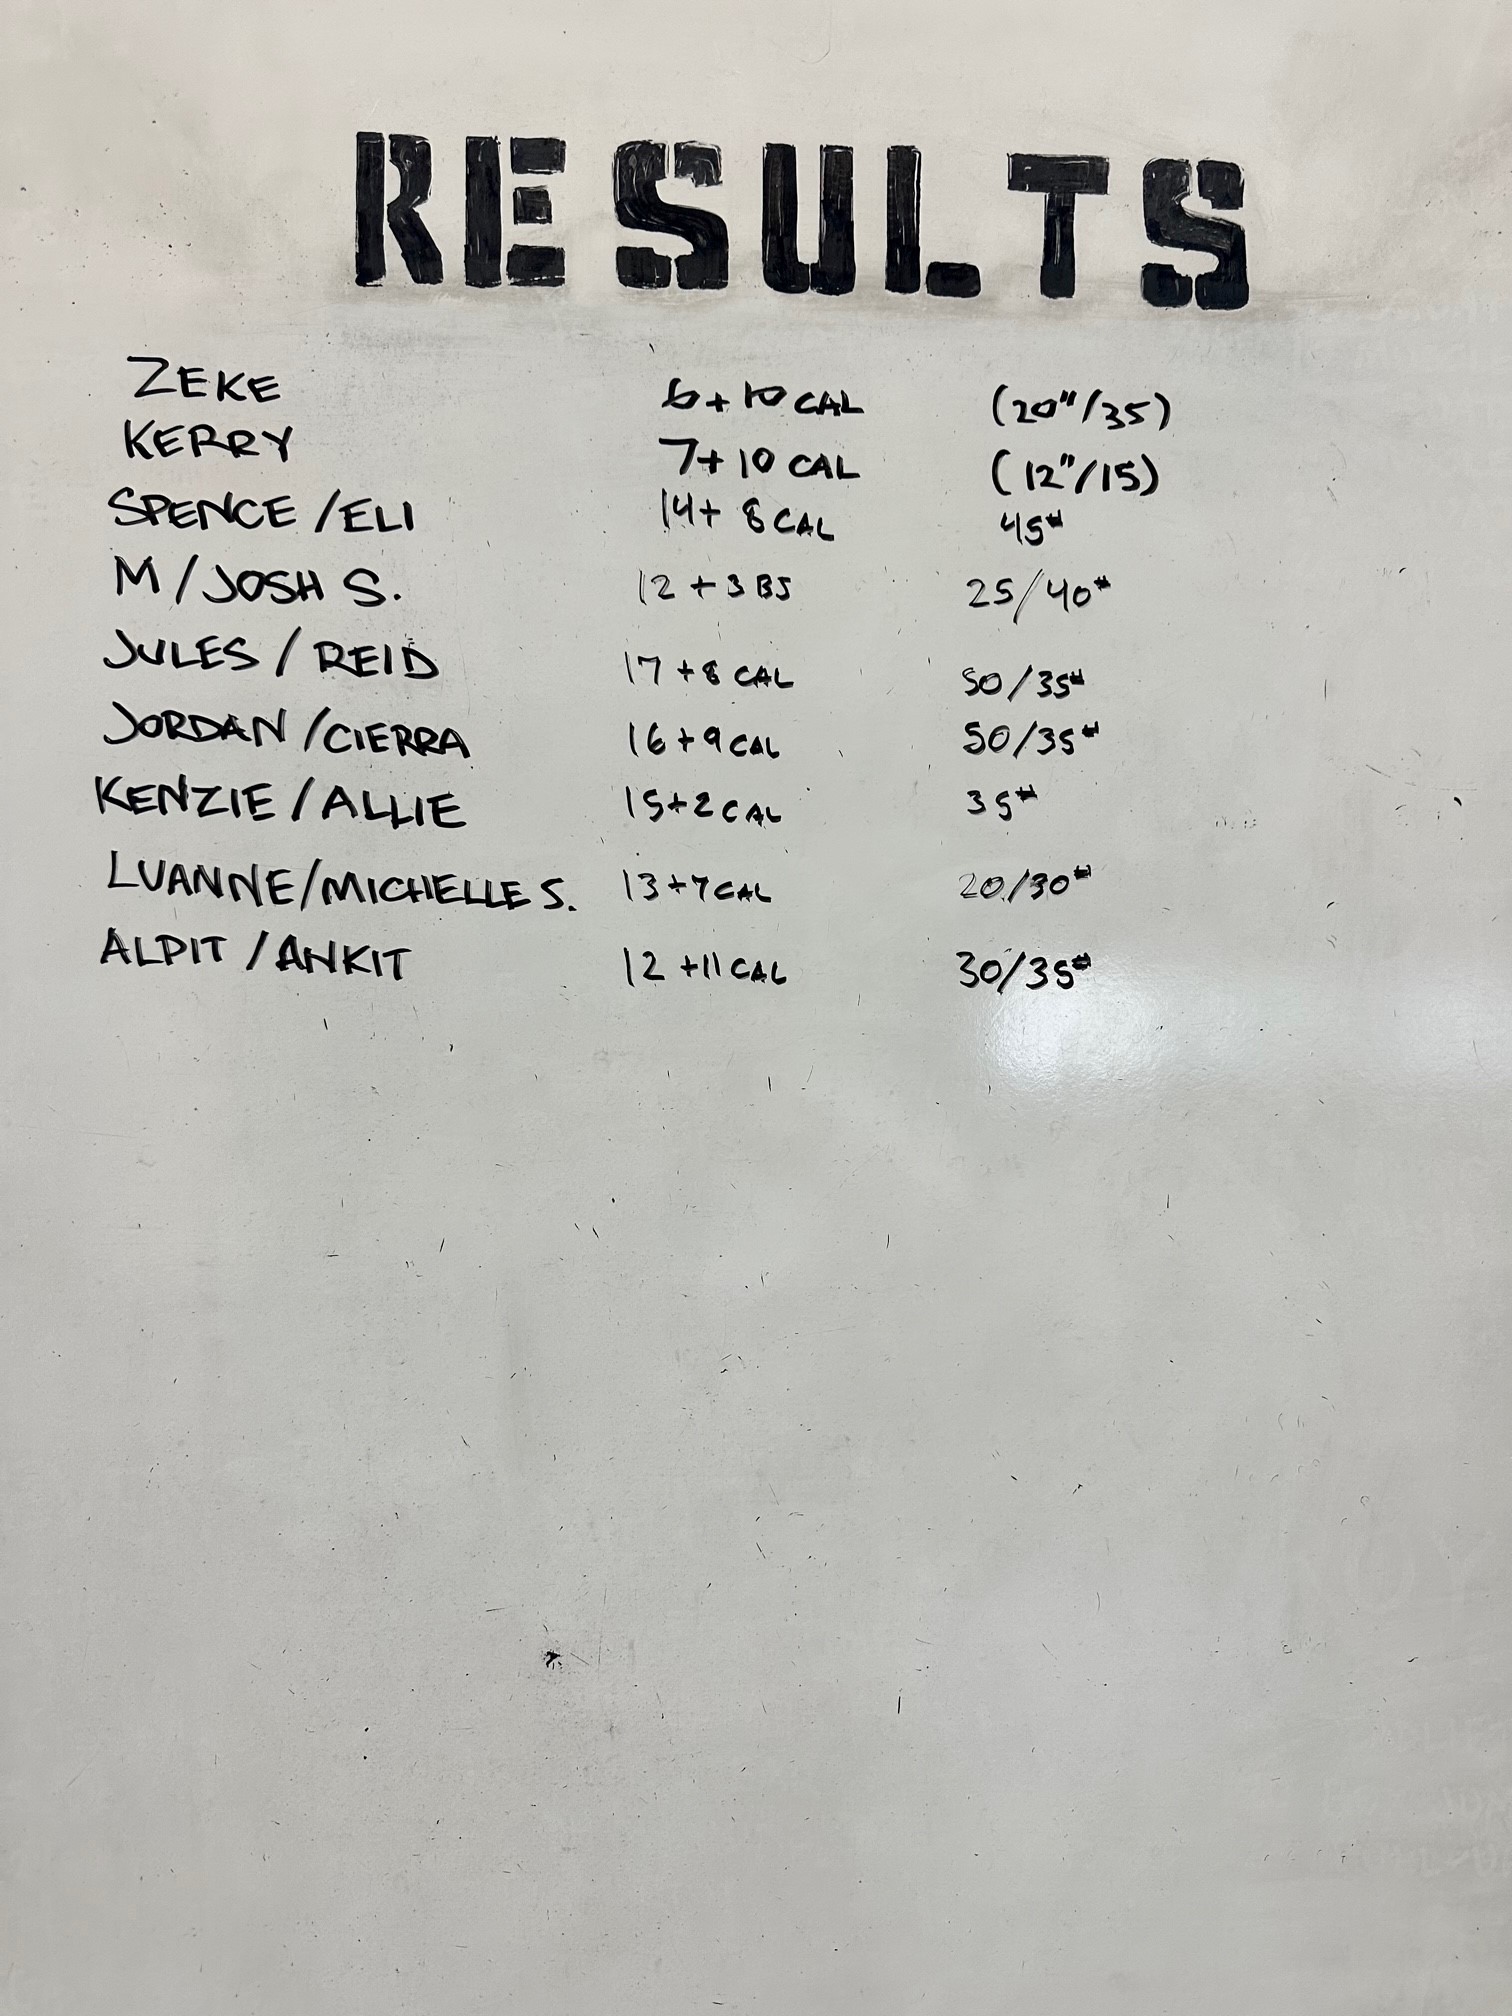 RESULTS
ZEKE 6 + 10 CAL (20"/35)
KERRY 7 + 10 CAL (12"/15)
SPENCE / ELI 14 + 8 CAL 45#
M / JOSH S. 12 + 3 BJ 25/40#
JULES / REID 17 + 8 CAL 50/35#
JORDAN / CIERRA 16 + 9 CAL 50/35#
KENZIE / ALLIE 15 + 2 CAL 35#
LUANNE/MICHELLE S. 13 + 7 CAL 20/30#
ALPIT / ANKIT 12 + 11 CAL 30/35#